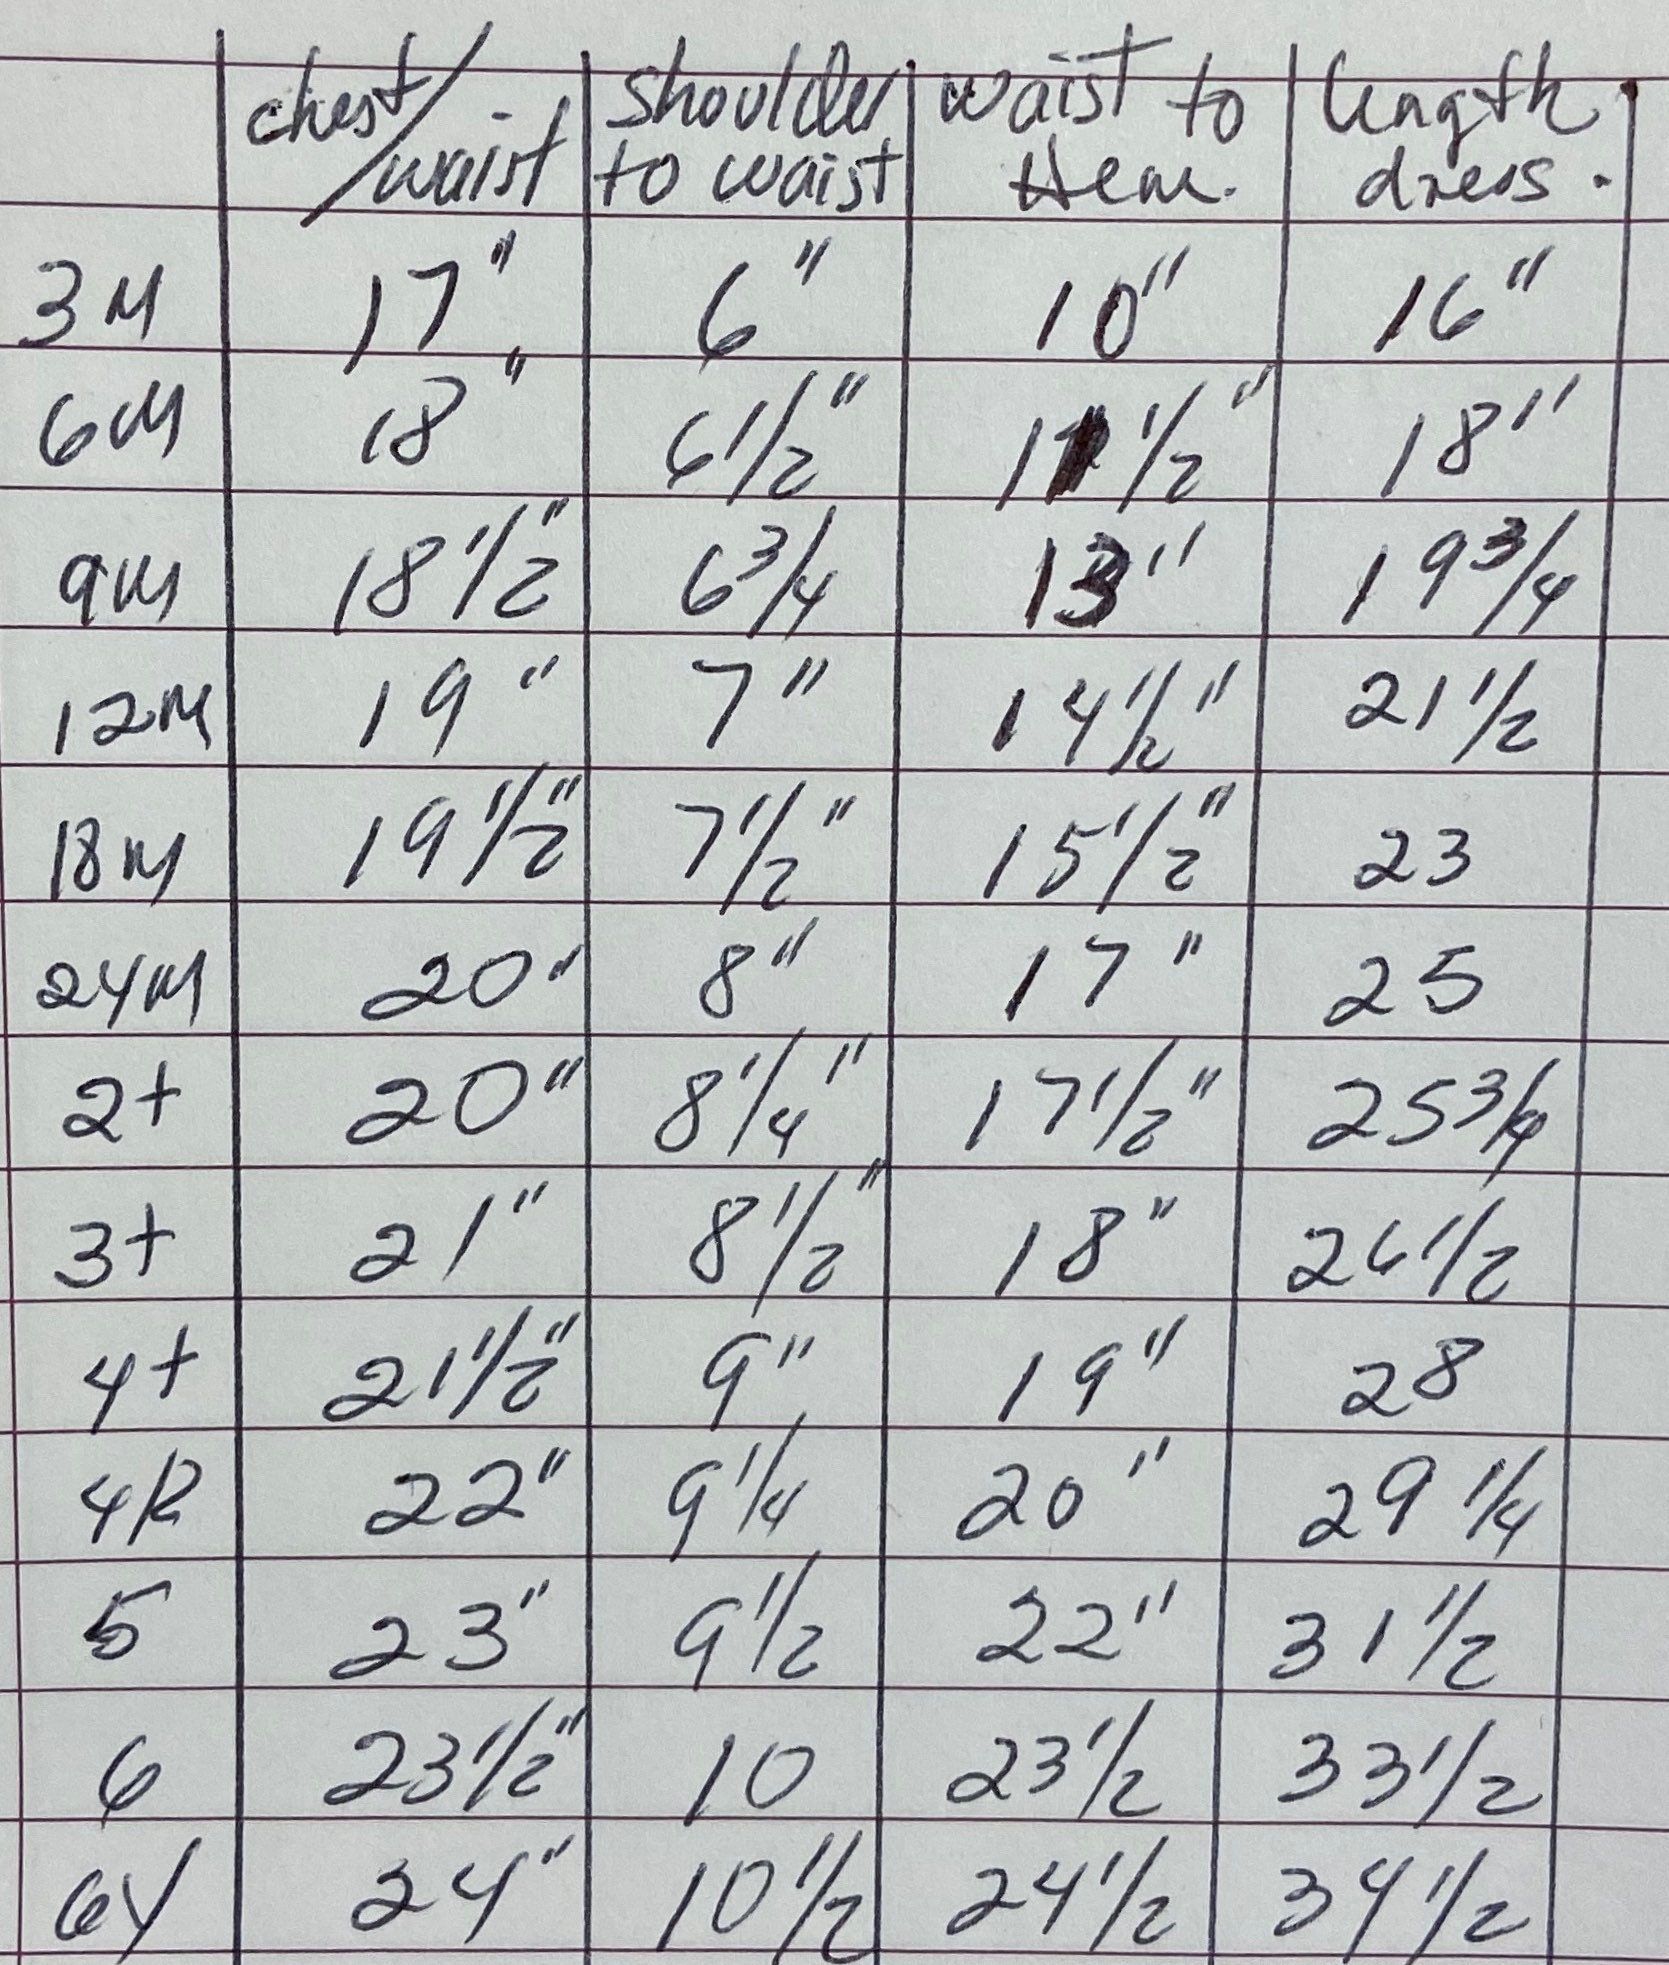 chest/waist shoulder to waist waist to Hem. length dress.
3M 17" 6" 10" 16"
6M 18" 6 1/2" 11 1/2" 18"
9M 18 1/2" 6 3/4 13" 19 3/4
12M 19" 7" 14 1/2" 21 1/2
18M 19 1/2" 7 1/2" 15 1/2" 23
24M 20" 8" 17" 25
2t 20" 8 1/4" 17 1/2" 25 3/4
3t 21" 8 1/2" 18" 26 1/2
4t 21 1/2" 9" 19" 28
4R 22" 9 1/4 20" 29 1/4
5 23" 9 1/2 22" 31 1/2
6 23 1/2" 10 23 1/2 33 1/2
24" 10 1/2 24 1/2 34 1/2